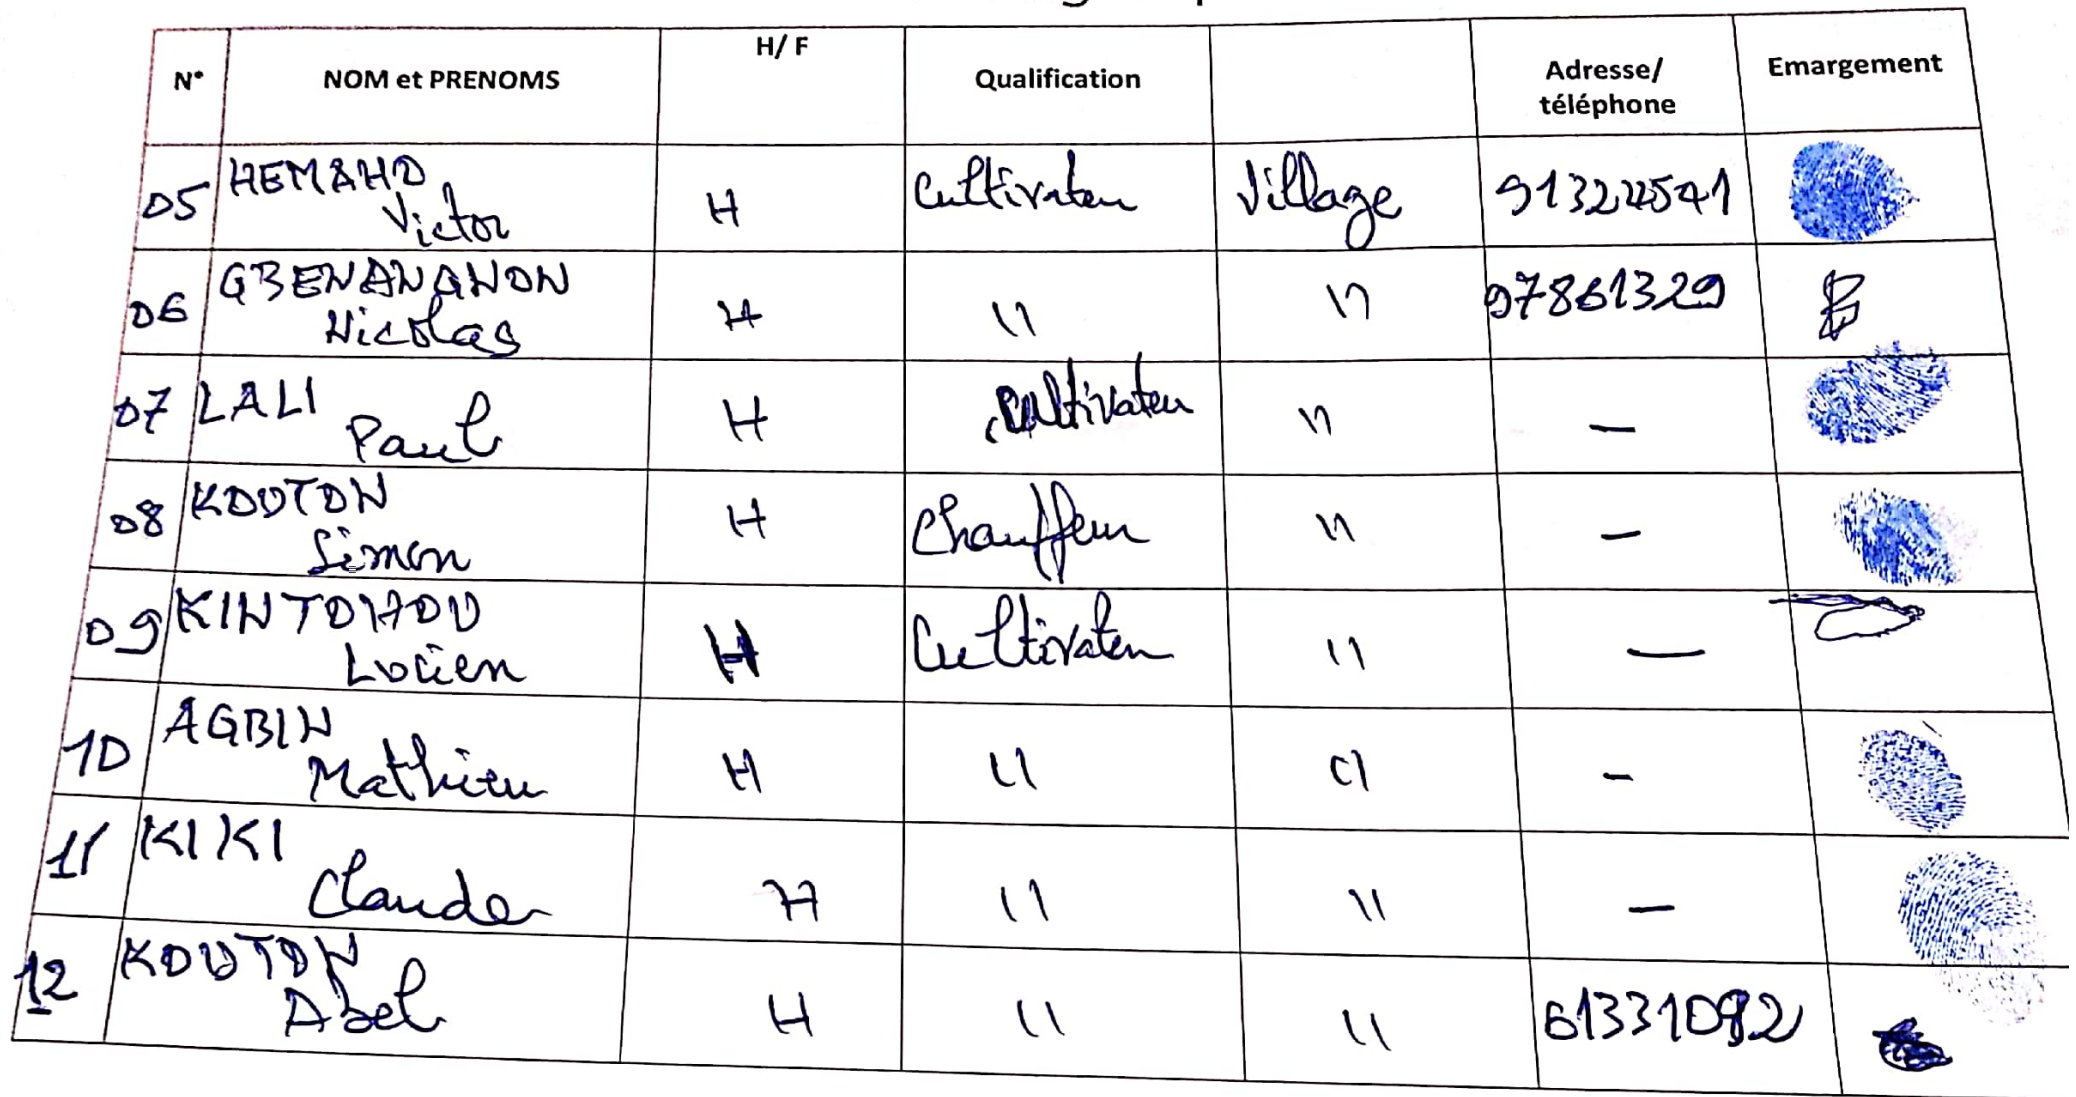 N° NOM et PRENOMS H/ F Qualification Adresse/ téléphone Emargement
05 HEMAHO Victor H Cultivateur Village
06 GBENANGNON Nicolas H 〃 〃 97861329
07 LALI Paul H Cultivateur 〃 —
08 KOUTON Simon H Chauffeur 〃 —
09 KINTOHOU Lucien H Cultivateur 〃 —
10 AGBIN Mathieu H 〃 〃 -
11 KIKI Claude H 〃 〃 —
12 KOUTON Abel H 〃 〃